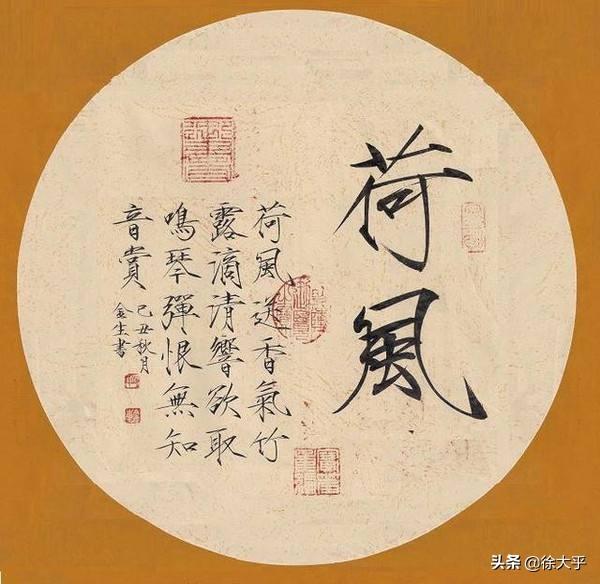 荷風
荷風送香氣竹
露滴清響欲取
鳴琴彈恨無知
音賞
己丑秋月
金生書
头条 @徐大乎